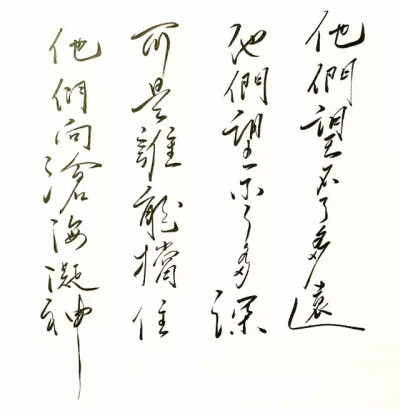 他們望不了多遠
他們望不了多深
可是誰能擋住
他們向滄海凝神